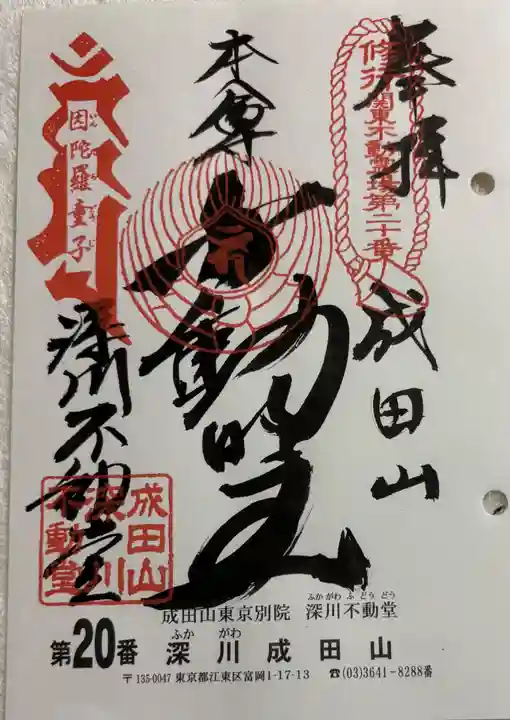 奉拝 成田山
修行 関東不動霊場第二十番
本尊 不動明王
因陀羅童子
深川不動堂
成田山
深川
不動堂
ふかがわ ふどうどう
成田山東京別院 深川不動堂
ふか がわ
第20番 深川成田山
〒135-0047 東京都江東区富岡1-17-13 ☎(03)3641-8288番